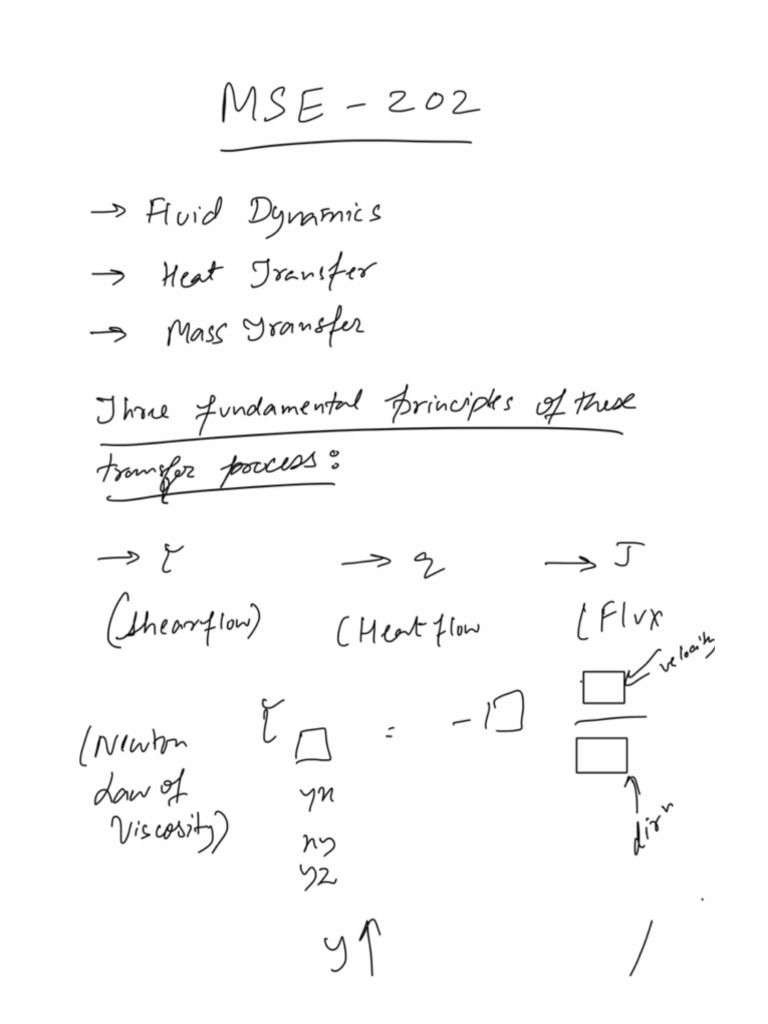 MSE - 202
→ Fluid Dynamics
→ Heat Transfer
→ Mass Transfer
Three fundamental principles of these
transfer process:
→ τ → q → J
(Shearflow) (Heat flow (Flux
velocity
τ□ = -1□ □/□
(Newton
Law of
Viscosity)
yx
xy
yz
dirⁿ
y↑ /